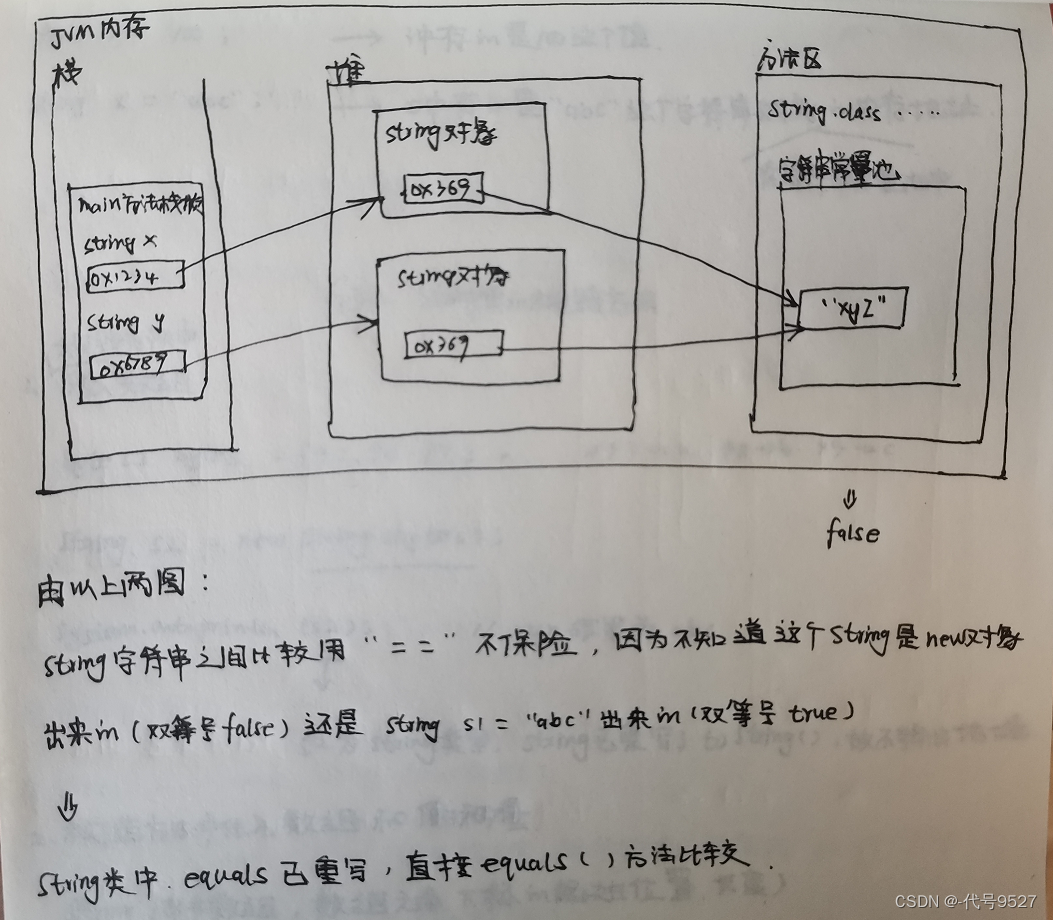 JVM内存
栈
堆
方法区
main方法栈帧
string x
0x1234
string y
0x6789
string对象
0x369
string对象
0x369
string.class .....
字符串常量池
"xyz"
⇓
false
由以上两图：
string字符串之间比较用"=="不保险，因为不知道这个string是new对象
出来in（双等号false）还是 string s1="abc"出来in（双等号true）
⇓
string类中.equals已重写，直接equals()方法比较.
CSDN @-代号9527